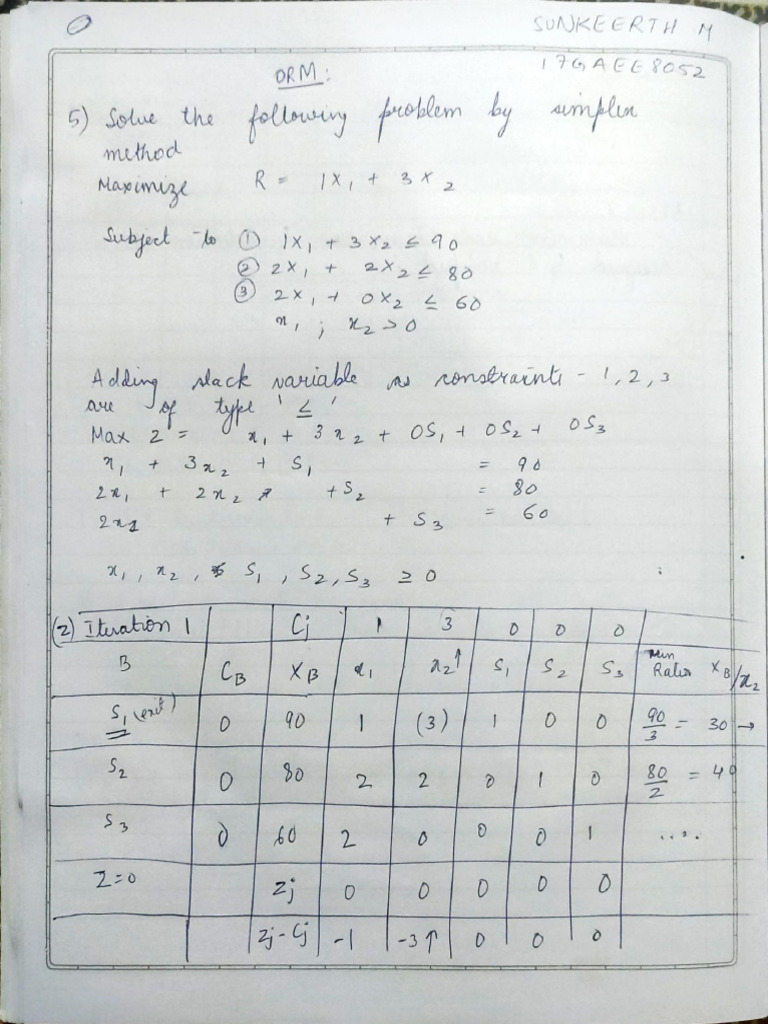 SUNKEERTH M
17GAEE8052
ORM:
5) Solve the following problem by simplex
method
Maximize R = 1X₁ + 3X₂
Subject to ① 1X₁ + 3X₂ ≤ 90
② 2X₁ + 2X₂ ≤ 80
③ 2X₁ + 0X₂ ≤ 60
x₁ ; x₂ > 0
Adding slack variable as constraints - 1, 2, 3
are of type '≤'
Max Z = x₁ + 3x₂ + 0S₁ + 0S₂ + 0S₃
x₁ + 3x₂ + S₁ = 90
2x₁ + 2x₂ + S₂ = 80
2x₁ + S₃ = 60
x₁, x₂, S₁, S₂, S₃ ≥ 0
(2) Iteration 1 Cj 1 3 0 0 0
B CB XB x₁ x₂↑ S₁ S₂ S₃ Min Ratio XB/x₂
S₁ (exit) 0 90 1 (3) 1 0 0 90/3 = 30 →
S₂ 0 80 2 2 0 1 0 80/2 = 40
S₃ 0 60 2 0 0 0 1 ....
Z=0 Zj 0 0 0 0 0
Zj-Cj -1 -3↑ 0 0 0